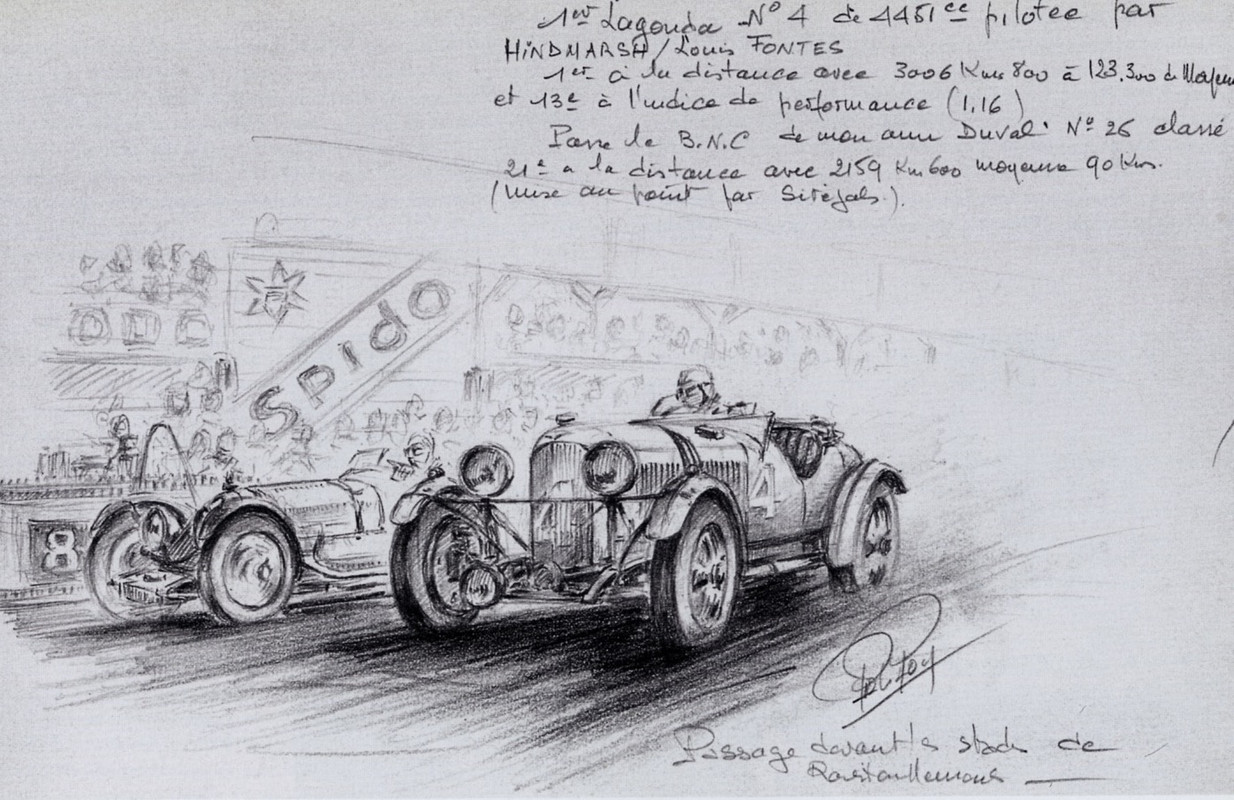 1er Lagonda N° 4 de 4451 cc pilotée par
HINDMARSH / Louis FONTES
1er à la distance avec 3006 Kms 800 à 123,300 de Moyenne
et 13e à l'indice de performance (1,16)
Passe la B.N.C de mon ami Duval N° 26 classé
21e a la distance avec 2159 Km 600 moyenne 90 Km.
(mise au point par Siréjols.)
Spido
8
4
4
Passage devant le stade de